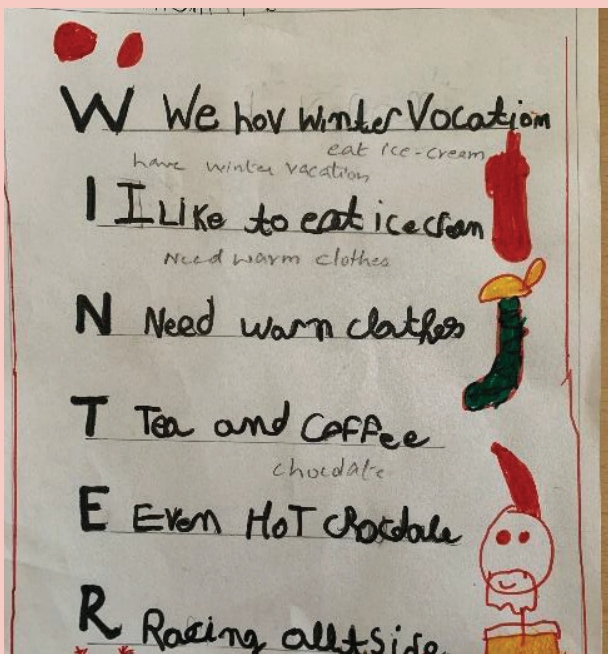 W We hov winter Vocatiom
eat ice-cream
have winter vacation
I I Like to eat icecream
Need warm clothes
N Need warn clathes
T Tea and Coffee
chocdate
E Even HoT chocdale
R Racing outside